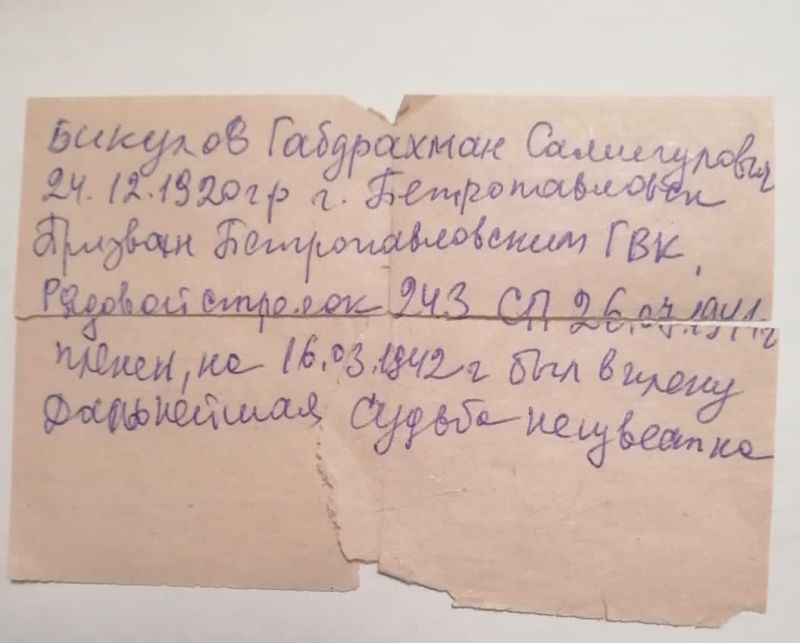 Бикулов Габдрахман Салигулович
24.12.1920гр г. Петропавловск
Призван Петропавловским ГВК,
Рядовой стрелок 243 СП 26.07.1941г
пленен, на 16.03.1942 г был в плену
Дальнейшая судьба неизвестна